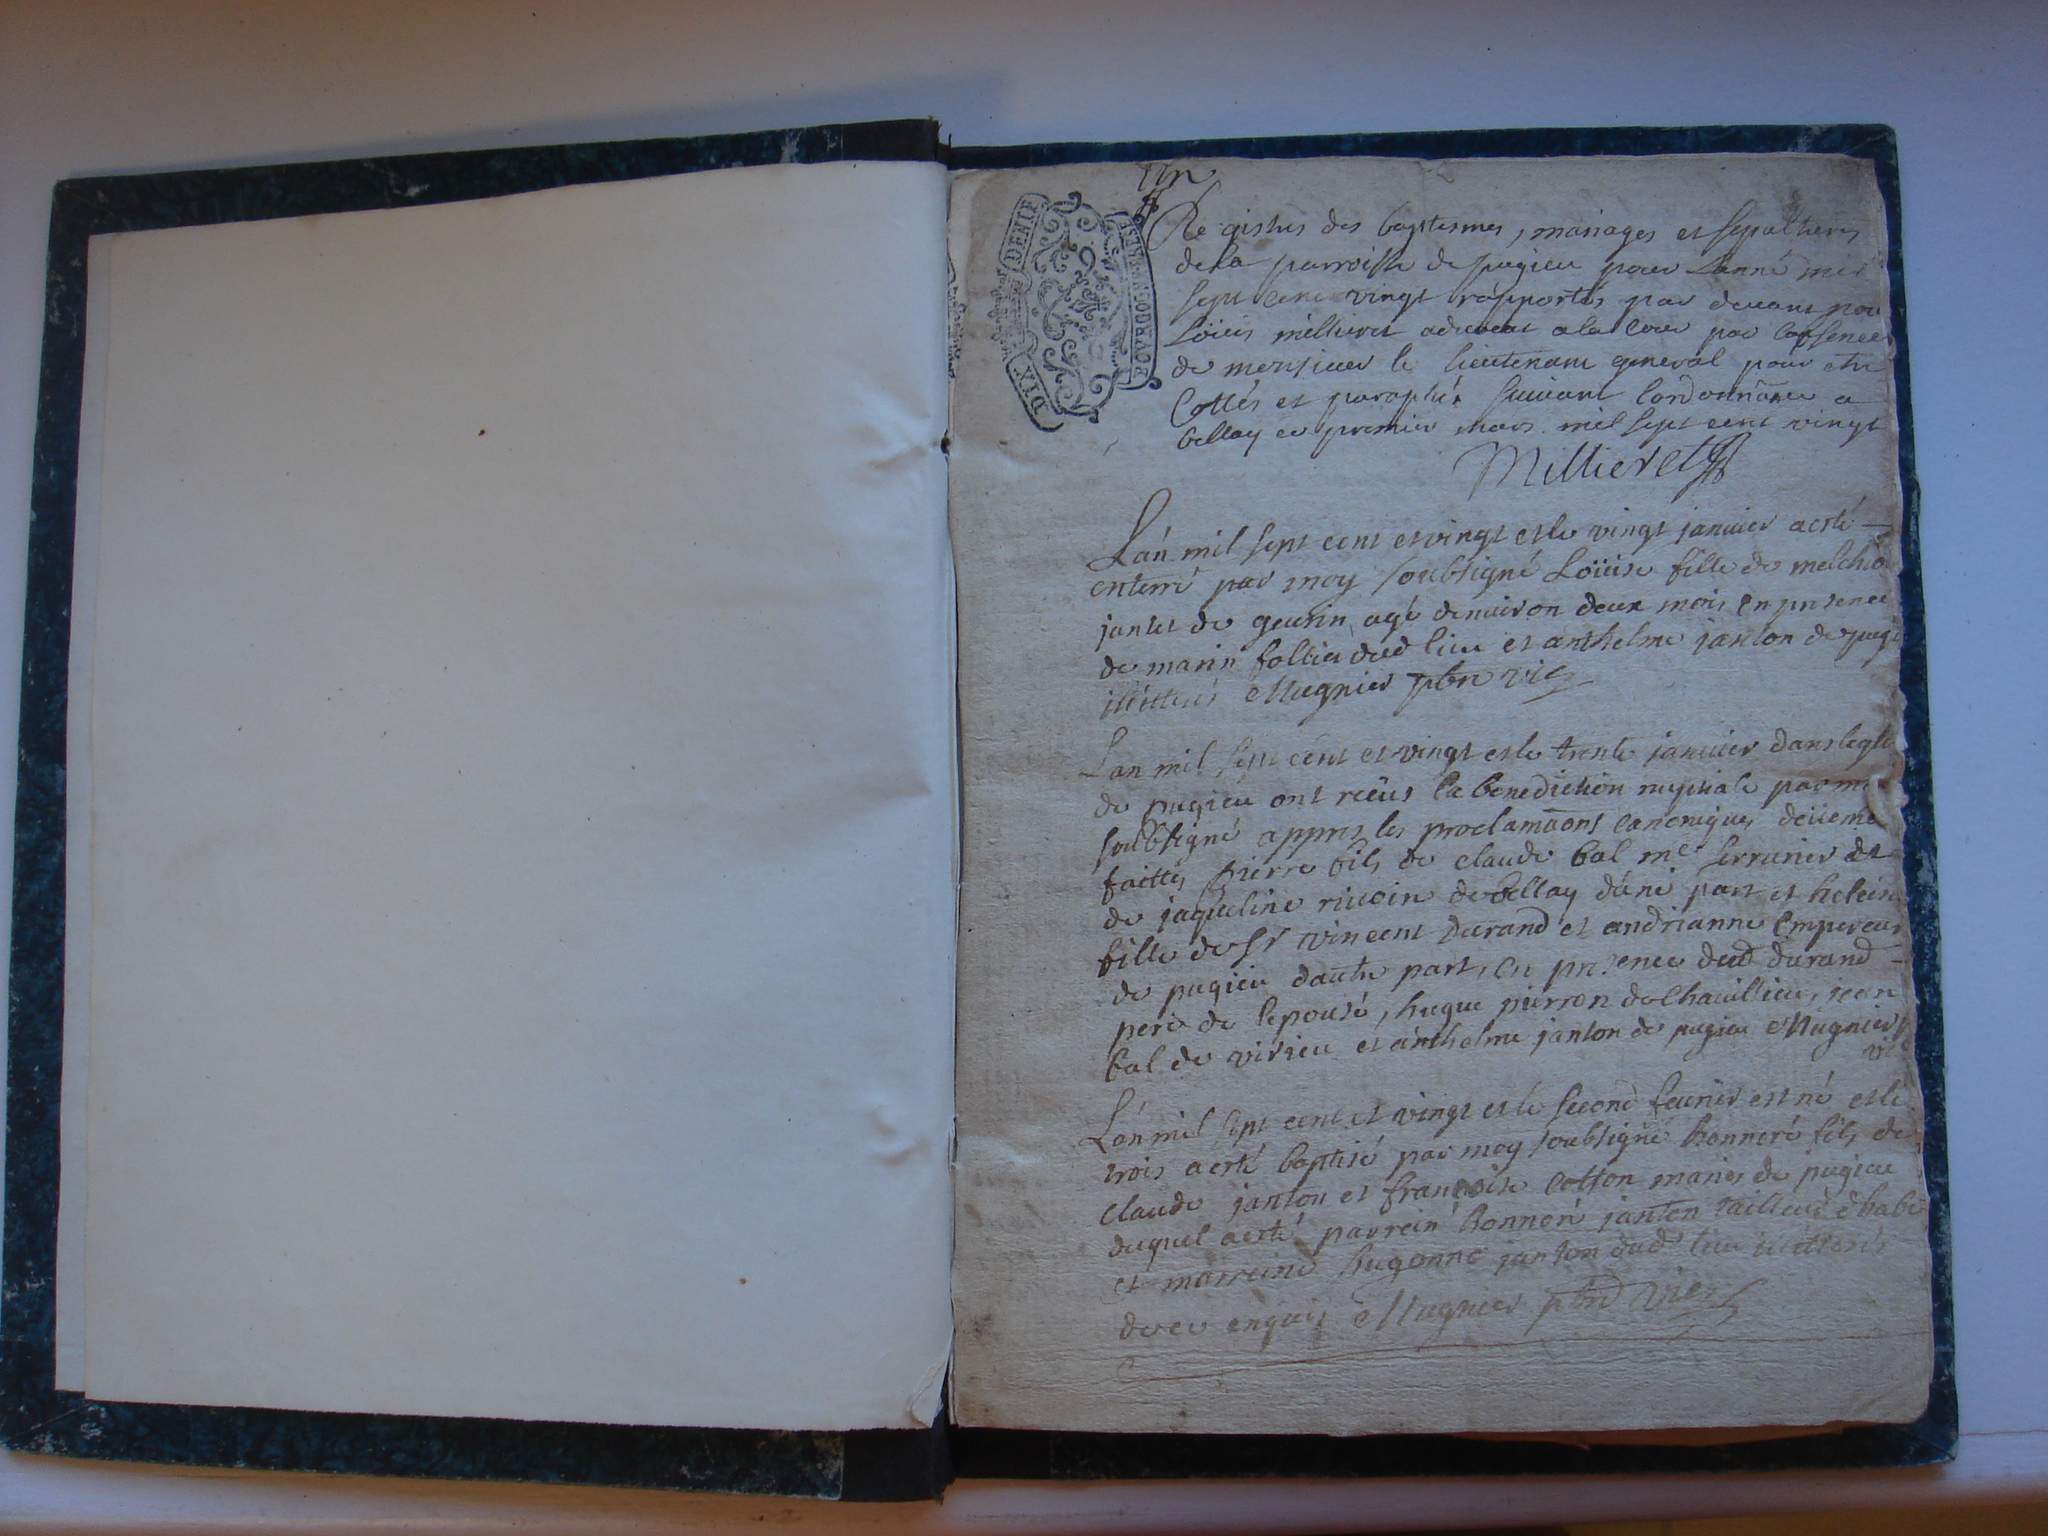 Un
DIX DENIE
BOURGOGNE BRESSE
Registres des baptesmes, mariages et sepultures
de la parroisse de pugieu pour Lanné mil
sept cent vingt rapportés par devant nou
Loüis millieret advocat a la cour par l'absence
de monsieur le lieutenant general pour etre
Cottés et paraphés suivant l'ordonnance a
bellay ce premier mars mil sept cent vingt
Millieret
L'an mil sept cent et vingt et le vingt janvier a esté
enterré par moy soubsigné Loüise fille de melchio
jantet de geurin agé denviron deux mois en presence
de marin follier dud lieu et anthelme janton de pugi
illitterés Mugnier pbre vic
Lan mil sept cent et vingt et le trente janvier dans legli
de pugieu ont receus la benediction nuptiale par m
soubsigné appres les proclamaons canoniques deüeme
faittes pierre fils de claude bal me serrurier et
de jaqueline rivoin de bellay d'une part et heleine
fille de sr vincent Durand et andrianne Empereur
de pugieu dautre part, en presence dud durand
pere de lepousé, hugue pierron de Chavillieu, jean
bal de virieu et anthelme janton de pugieu Mugnier
vic
L'an mil sept cent et vingt et le second fevrier est né et le
trois a esté baptisé par moy soubsigné honnoré fils de
claude janton et françoise cotton mariés de pugieu
duquel a esté parrein honnoré janton tailleur d'habi
et marreine hugonne janton dud lieu illitterés
de ce enquis Mugnier pbre vic